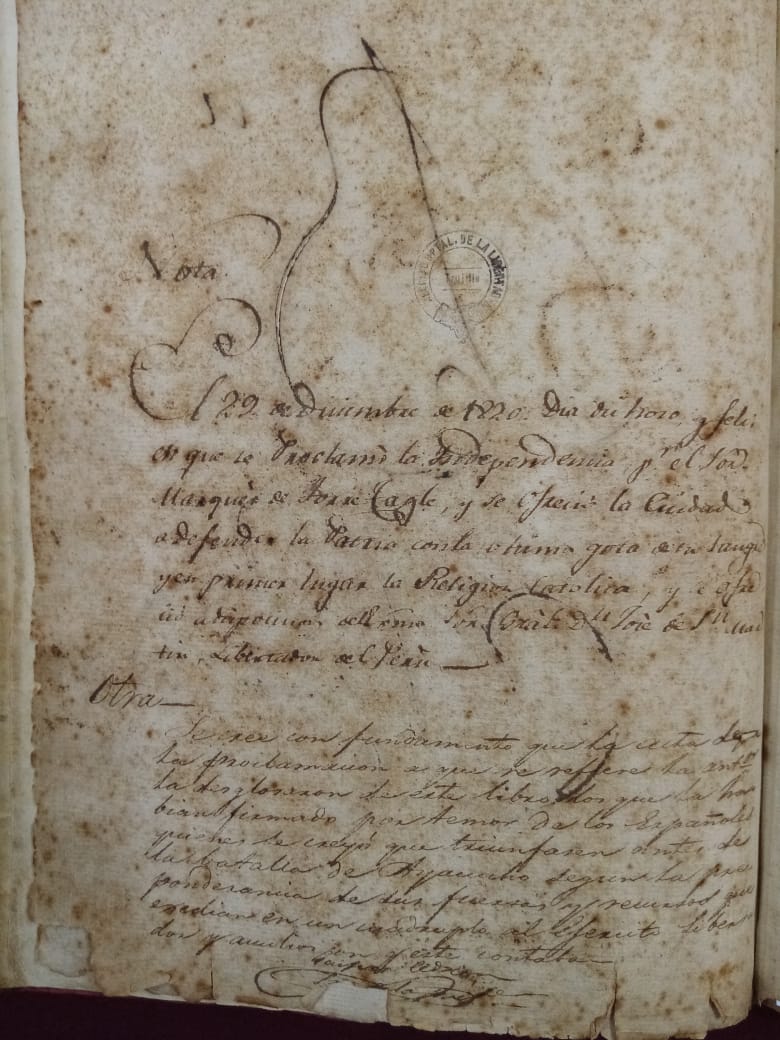 Nota
El 29 de Diciembre de 1820. Dia dichoso, y feliz
en que se Proclamó la Independencia, pr. el Sor.
Marques de Torre Tagle, y se ofreció la Ciudad
a defender la Patria con la ultima gota de su sangre
y en primer lugar la Religion Catolica, y se ofre
ció a disposicion del Exmo Sor. Gral. Dn. José de Sn. Mar
tin, Libertador del Perú
Otra
Se cree con fundamento que la acta de
la proclamacion a que se refiere la antr.
la desglosaron de éste libro los que la ha
bian firmado por temor de los Españoles
quienes se creyó que triunfasen antes de
la batalla de Ayacucho segun la pre
ponderancia de sus fuerzas y recursos que
excedian en un cuadruplo al Ejercito liber
dor y auxilios con qe. éste contaba